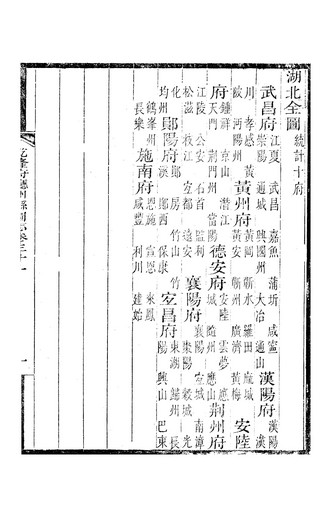 湖北全圖 統計十府
武昌府 江夏 武昌 嘉魚 蒲圻 咸寧 崇陽 通城 興國州 大冶 通山 漢陽府 漢陽 漢
川 孝感 黃陂 沔陽州 黃州府 黃岡 蘄水 羅田 麻城 黃安 蘄州 廣濟 黃梅 安陸
府 鍾祥 京山 潛江 天門 荊門州 當陽 德安府 安陸 雲夢 應城 隨州 應山 荊州府
江陵 公安 石首 監利 松滋 枝江 宜都 遠安 襄陽府 襄陽 宜城 南漳 棗陽 穀城 光
化 均州 鄖陽府 鄖 房 竹山 竹谿 鄖西 保康 宜昌府 東湖 歸州 長陽 興山 巴東
鶴峯州 長樂 施南府 恩施 宣恩 來鳳 咸豐 利川 建始
府廳州縣圖志卷三十一